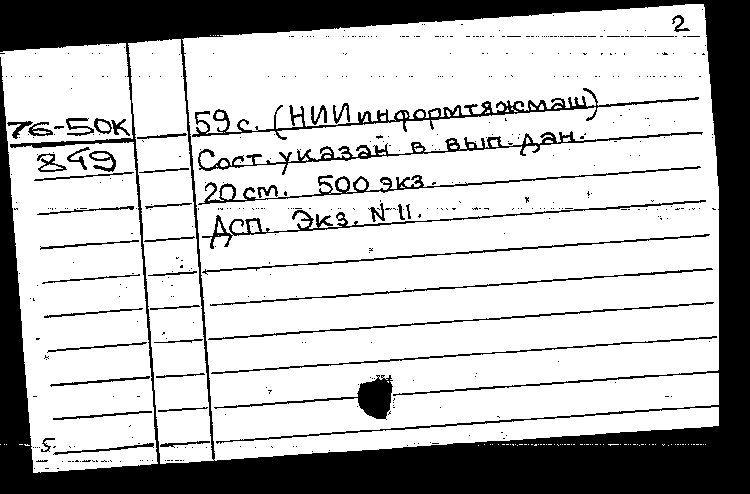 2
76-50К
849
59 с. (НИИинформтяжмаш)
Сост. указан в вып. дан.
20 см. 500 экз.
Дсп. Экз. N 11.
5